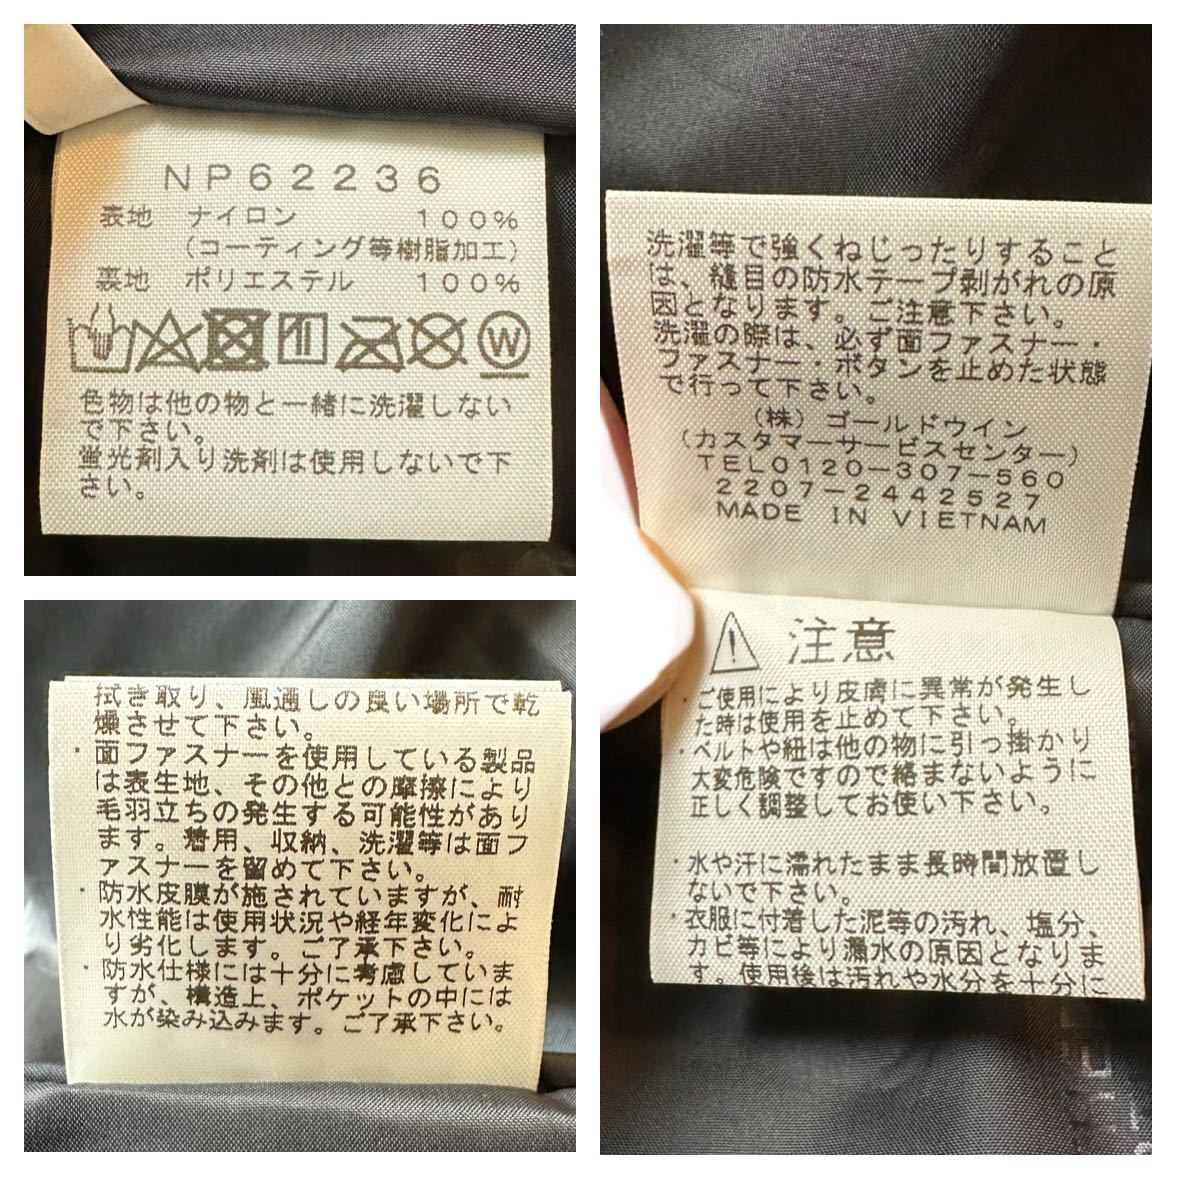 NP62236
表地 ナイロン 100%
(コーティング等樹脂加工)
裏地 ポリエステル 100%
W
色物は他の物と一緒に洗濯しない
で下さい。
蛍光剤入り洗剤は使用しないで下
さい。
拭き取り、風通しの良い場所で乾
燥させて下さい。
・面ファスナーを使用している製品
は表生地、その他との摩擦により
毛羽立ちの発生する可能性があり
ます。着用、収納、洗濯等は面フ
ァスナーを留めて下さい。
・防水皮膜が施されていますが、耐
水性能は使用状況や経年変化によ
り劣化します。ご了承下さい。
・防水仕様には十分に考慮していま
すが、構造上、ポケットの中には
水が染み込みます。ご了承下さい。
洗濯等で強くねじったりすること
は、縫目の防水テープ剥がれの原
因となります。ご注意下さい。
洗濯の際は、必ず面ファスナー・
ファスナー・ボタンを止めた状態
で行って下さい。
(株) ゴールドウイン
(カスタマーサービスセンター)
TEL0120-307-560
2207-2442527
MADE IN VIETNAM
注意
・ご使用により皮膚に異常が発生し
た時は使用を止めて下さい。
・ベルトや紐は他の物に引っ掛かり
大変危険ですので絡まないように
正しく調整してお使い下さい。
・水や汗に濡れたまま長時間放置し
ないで下さい。
・衣服に付着した泥等の汚れ、塩分、
カビ等により漏水の原因となりま
す。使用後は汚れや水分を十分に